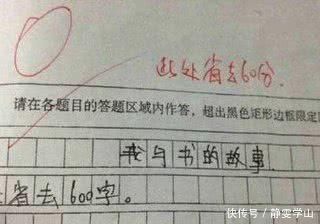 此处省去60分.
请在各题目的答题区域内作答，超出黑色矩形边框限定
我与书的故事.
省去600字。
快传号/静雯学山